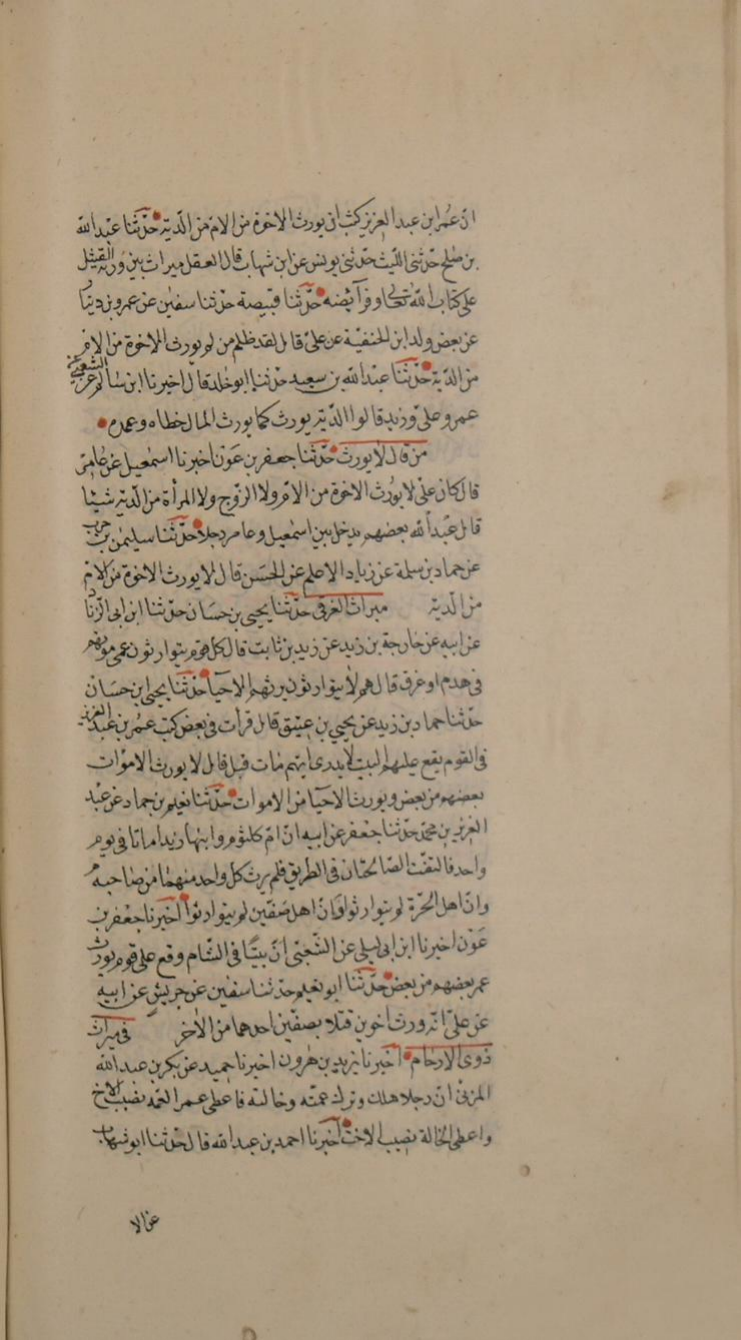 ان عمر ابن عبد العزيز كتب ان يورث الاخوة من الام من الدية حدثنا عبد الله
بن صلح حدثنى الليث حدثنى يونس عن ابن شهاب قال العقل ميراث بين ورثة القتيل
على كتاب الله تعالى وفرآئضه حدثنا قبيصة حدثنا سفين عن عمرو بن دينا
عن بعض ولد ابن الحنفية عن على قال لقد ظلم من لم يورث الاخوة من الام
من الدية حدثنا عبد الله بن سعيد حدثنا ابو خلد قال اخبرنا ابن سالم عن الشعبى عن
عمر وعلى وزيد قالوا الدية يورث كما يورث المال خطاه وعمده
من قال لا يورث حدثنا جعفر بن عون اخبرنا اسمعيل عن عامر
قال كان على لا يورث الاخوة من الام ولا الزوج ولا المرأة من الدية شيئا
قال عبد الله بعضهم يدخل بين اسمعيل وعامر رجلا حدثنا سليمن بن حرب
عن حماد بن سلمة عن زياد الاعلم عن الحسن قال لا يورث الاخوة من الام
من الدية ميراث الغرقى حدثنا يحيى بن حسان حدثنا ابن ابى الزنا
عن ابيه عن خارجة بن زيد عن زيد بن ثابت قال كل قوم يتوارثون عمى موتهم
فى هدم او غرق قال هم لا يتوارثون يرثهم الاحيآ حدثنا يحيى ابن حسان
حدثنا حماد بن زيد عن يحيى بن عتيق قال قرأت فى بعض كتب عمر بن عبد العزيز
فى القوم يقع عليهم البيت لا يدرى ايهم مات قبل قال لا يورث الاموات
بعضهم من بعض ويورث الاحيآ من الاموات حدثنا نعيم بن حماد عن عبد
العزيز بن محمد حدثنا جعفر عن ابيه ان ام كلثوم وابنها زيدا ماتا فى يوم
واحد فالتقت الصائحتان فى الطريق فلم يرث كل واحد منهما من صاحبه
وان اهل الحرة لم يتوارثوا وان اهل صفين لم يتوارثوا اخبرنا جعفر بن
عون اخبرنا ابن ابى ليلى عن الشعبى ان بيتا فى الشام وقع على قوم يورث
عمر بعضهم من بعض حدثنا ابو نعيم حدثنا سفين عن حريش عن ابيه
عن على انه ورث اخوين قتلا بصفين احدهما من الاخر فى ميراث
ذوى الارحام اخبرنا يزيد بن هرون اخبرنا حميد عن بكر بن عبد الله
المزنى ان رجلا هلك وترك عمته وخالته فاعطى عمر العمة نصيب الاخ
واعطى الخالة نصيب الاخت اخبرنا احمد بن عبد الله قال حدثنا ابو شهاب